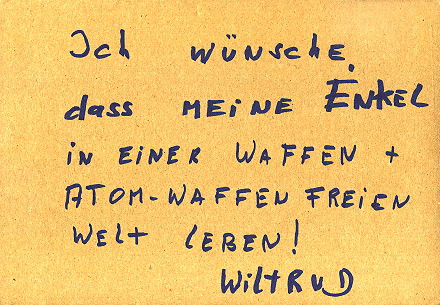 Ich WÜNSCHE,
dass MEINE ENKEL
IN EINER WAFFEN +
ATOM-WAFFEN FREIEN
WELT LEBEN!
WiltRUD